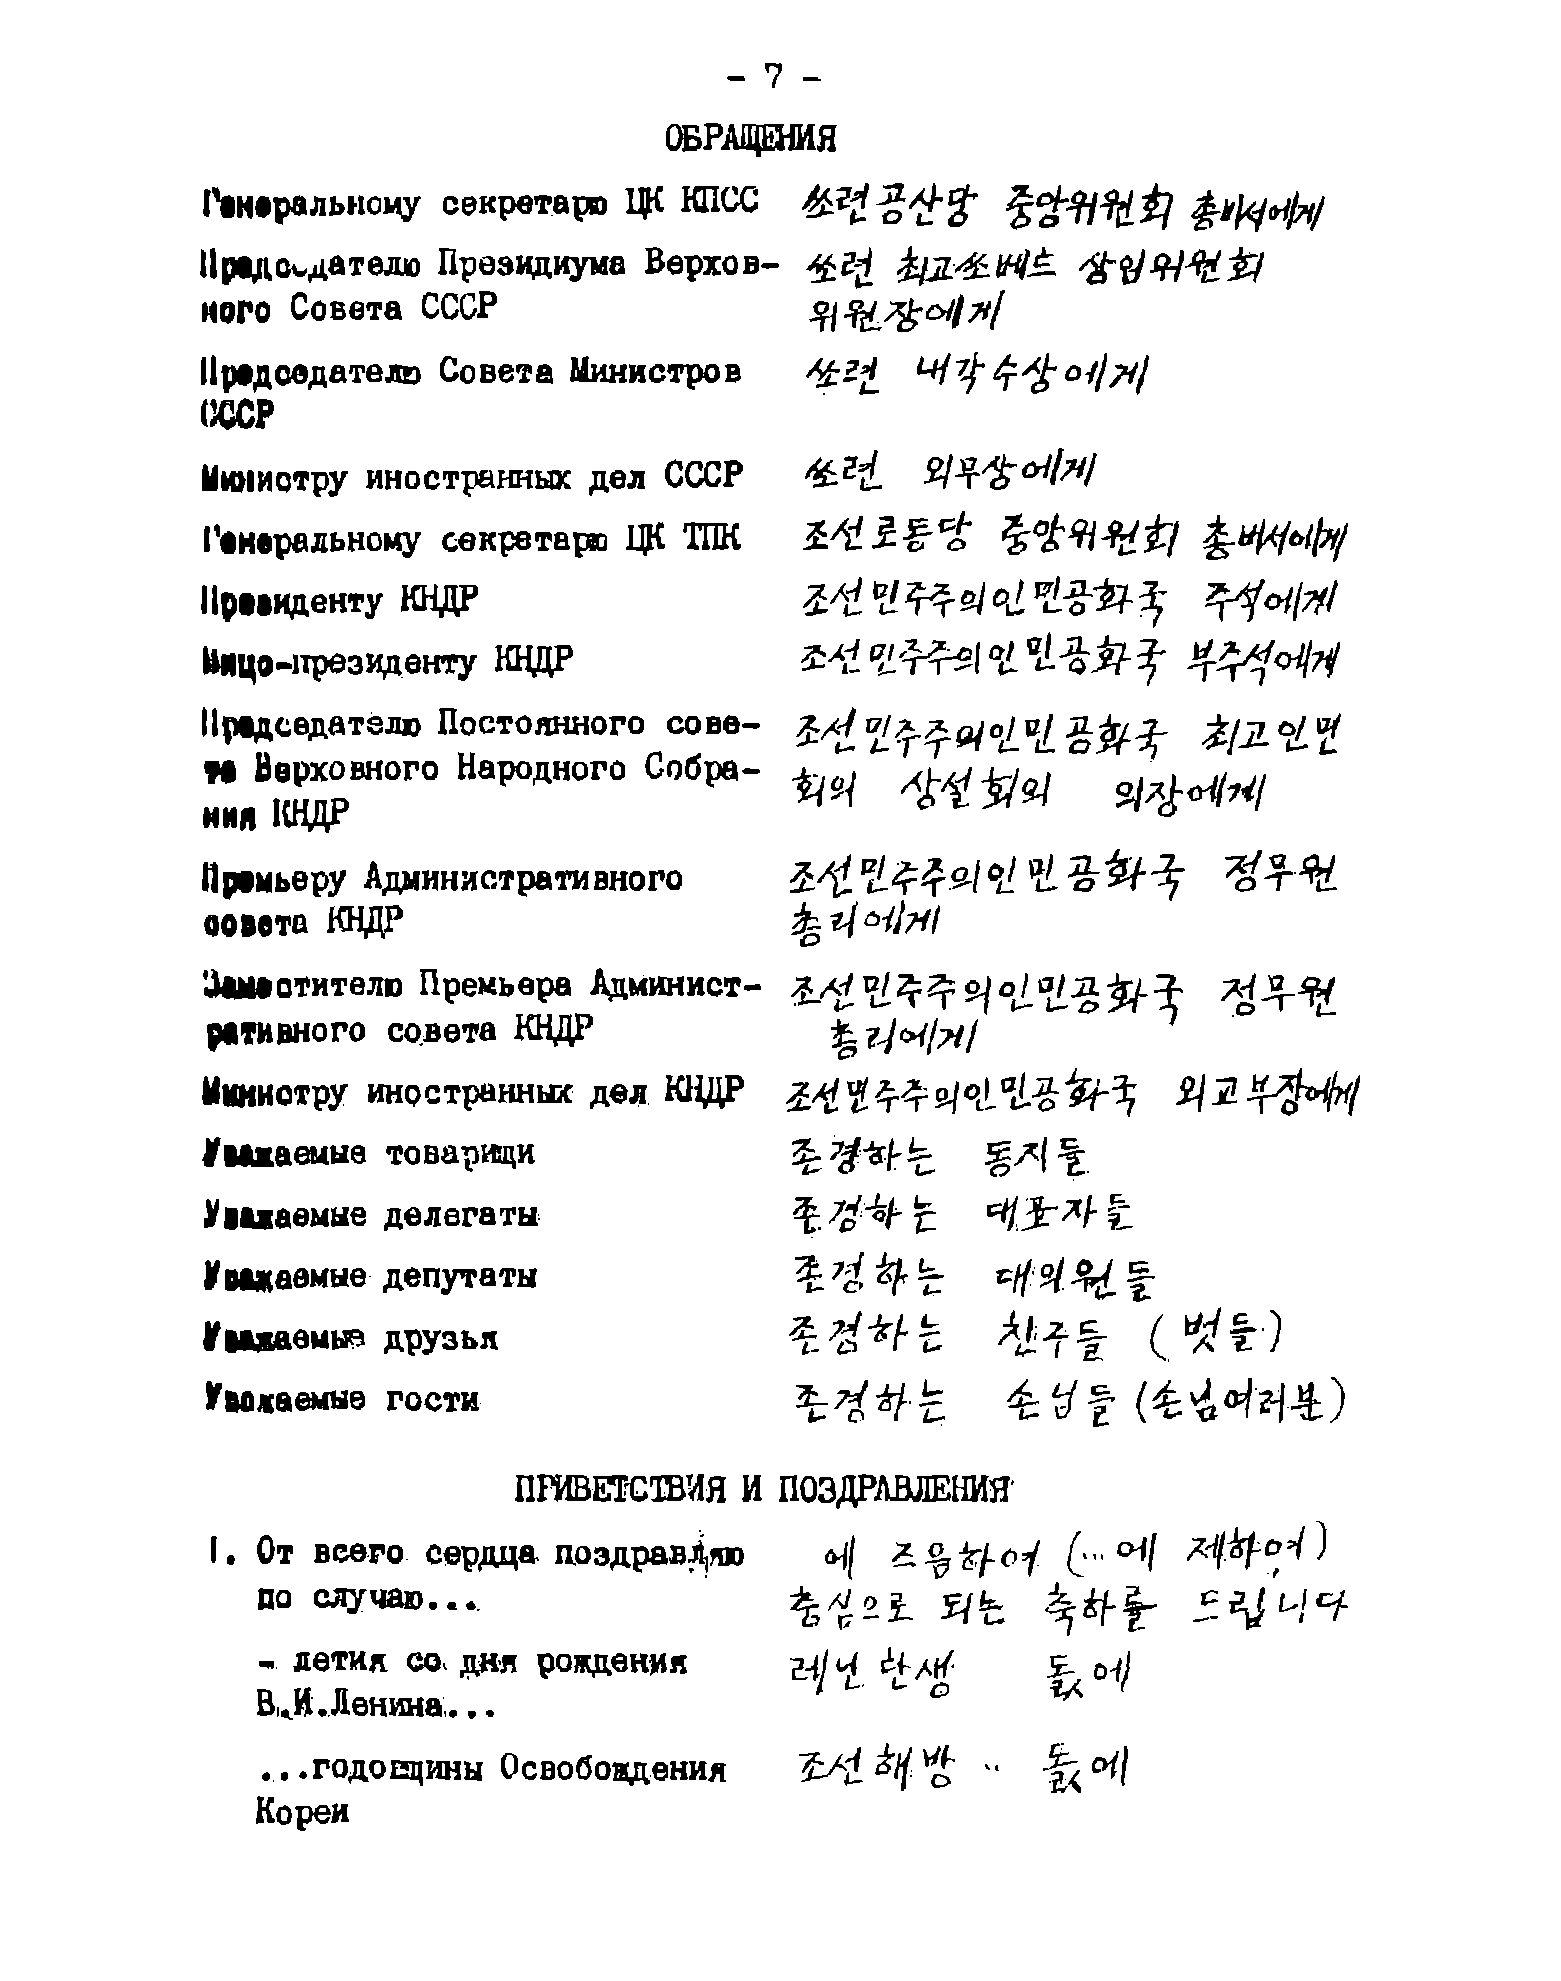 - 7 -
ОБРАЩЕНИЯ
Генеральному секретарю ЦК КПСС 쏘련공산당 중앙위원회 총비서에게
Председателю Президиума Верхов- 쏘련 최고쏘베트 상임위원회
ного Совета СССР 위원장에게
Председателю Совета Министров 쏘련 내각수상에게
СССР
Министру иностранных дел СССР 쏘련 외무상에게
Генеральному секретарю ЦК ТПК 조선로동당 중앙위원회 총비서에게
Президенту КНДР 조선민주주의인민공화국 주석에게
Вице-президенту КНДР 조선민주주의인민공화국 부주석에게
Председателю Постоянного сове- 조선민주주의인민공화국 최고인민
та Верховного Народного Собра- 회의 상설회의 의장에게
ния КНДР
Премьеру Административного 조선민주주의인민공화국 정무원
совета КНДР 총리에게
Заместителю Премьера Админист- 조선민주주의인민공화국 정무원
ративного совета КНДР 총리에게
Министру иностранных дел КНДР 조선민주주의인민공화국 외교부장에게
Уважаемые товарищи 존경하는 동지들
Уважаемые делегаты 존경하는 대표자들
Уважаемые депутаты 존경하는 대의원들
Уважаемые друзья 존경하는 친구들 (벗들)
Уважаемые гости 존경하는 손님들 (손님여러분)
ПРИВЕТСТВИЯ И ПОЗДРАВЛЕНИЯ
1. От всего сердца поздравляю 에 즈음하여 (...에 제하여)
по случаю... 충심으로 되는 축하를 드립니다
- летия со дня рождения 레닌탄생 돐에
В.И.Ленина...
...годовщины Освобождения 조선해방 .. 돐에
Кореи